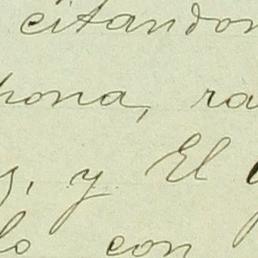 citando
pona, ra
, y El
lo con